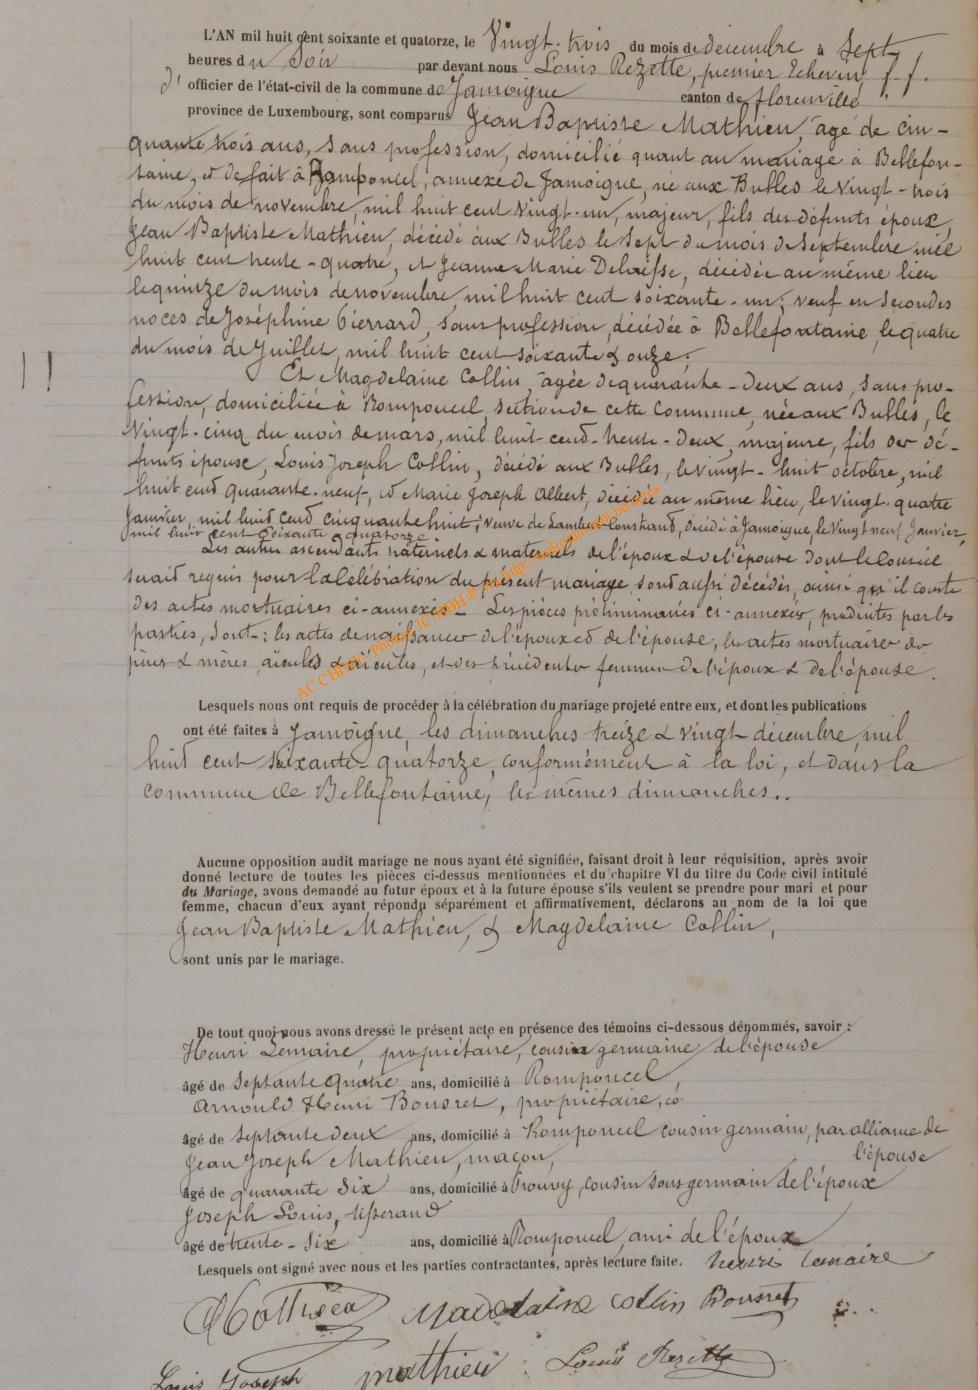 L'AN mil huit cent soixante et quatorze, le Vingt-trois du mois de décembre à Sept
heures du Soir par devant nous Louis Rezette, premier Echevin, f.f.
d' officier de l'état-civil de la commune de Jamoigne canton de florenville
province de Luxembourg, sont comparus Jean Baptiste Mathieu, âgé de cin-
quante trois ans, sans profession, domicilié quant au mariage à Bellefon-
taine, et de fait à Romponcel, annexe de Jamoigne, né aux Bulles le vingt-trois
du mois de novembre, mil huit cent vingt-un, majeur, fils des défunts époux,
Jean Baptiste Mathieu, décédé aux Bulles le Sept du mois de Septembre mil
huit cent trente-quatre, et Jeanne Marie Dehaisse, décédée au même lieu
le quinze du mois de novembre mil huit cent soixante-un; veuf en secondes
noces de Joséphine Pierrard, sans profession, décédée à Bellefontaine, le quatre
du mois de Juillet, mil huit cent soixante & onze;
Et Magdelaine Collin, âgée de quarante-deux ans, sans pro-
fession, domiciliée à Romponcel, section de cette commune, née aux Bulles, le
Vingt-cinq du mois de mars, mil huit cent-trente-deux, majeure, fils des dé-
funts épouse, Louis Joseph Collin, décédé aux Bulles, le vingt-huit octobre, mil
huit cent quarante-neuf, et Marie Joseph Albert, décédée au même lieu, le vingt-quatre
Janvier, mil huit cent cinquante huit; veuve de Lambert Constand, décédé à Jamoigne, le Vingt neuf Janvier,
mil huit cent soixante quatorze.
Les autres ascendants paternels & maternels de l'époux & de l'épouse dont le conseil
serait requis pour la célébration du présent mariage sont aussi décédés, ainsi qu'il conste
des actes mortuaires ci-annexés. Les pièces préliminaires ci-annexées, produites par les
parties, sont: les actes de naissance de l'époux et de l'épouse, les actes mortuaires des
pères & mères, aïeuls & aïeules, et des précédentes femmes de l'époux & de l'épouse.
AC CHINY - Photo
Lesquels nous ont requis de procéder à la célébration du mariage projeté entre eux, et dont les publications
ont été faites à Jamoigne, les dimanches treize & vingt décembre, mil
huit cent soixante-quatorze, conformément à la loi, et dans la
commune de Bellefontaine, les mêmes dimanches..
Aucune opposition audit mariage ne nous ayant été signifiée, faisant droit à leur réquisition, après avoir
donné lecture de toutes les pièces ci-dessus mentionnées et du chapitre VI du titre du Code civil intitulé
du Mariage, avons demandé au futur époux et à la future épouse s'ils veulent se prendre pour mari et pour
femme, chacun d'eux ayant répondu séparément et affirmativement, déclarons au nom de la loi que
Jean Baptiste Mathieu, & Magdelaine Collin,
sont unis par le mariage.
De tout quoi nous avons dressé le présent acte en présence des témoins ci-dessous dénommés, savoir :
Henri Lemaire, propriétaire, cousin germaine de l'épouse
âgé de Septante quatre ans, domicilié à Romponcel,
Arnould Henri Bousret, propriétaire,
âgé de Septante deux ans, domicilié à Romponcel cousin germain, par alliance de
l'épouse
Jean Joseph Mathieu, maçon,
âgé de quarante Six ans, domicilié à Prouvy, cousin sous germain de l'époux
Joseph Louis, tisserand
âgé de trente-Six ans, domicilié à Romponcel, ami de l'époux
Lesquels ont signé avec nous et les parties contractantes, après lecture faite. henri Lemaire
Mathieu Madelaine Collin Bousret
Louis Joseph mathieu Louis Rezette